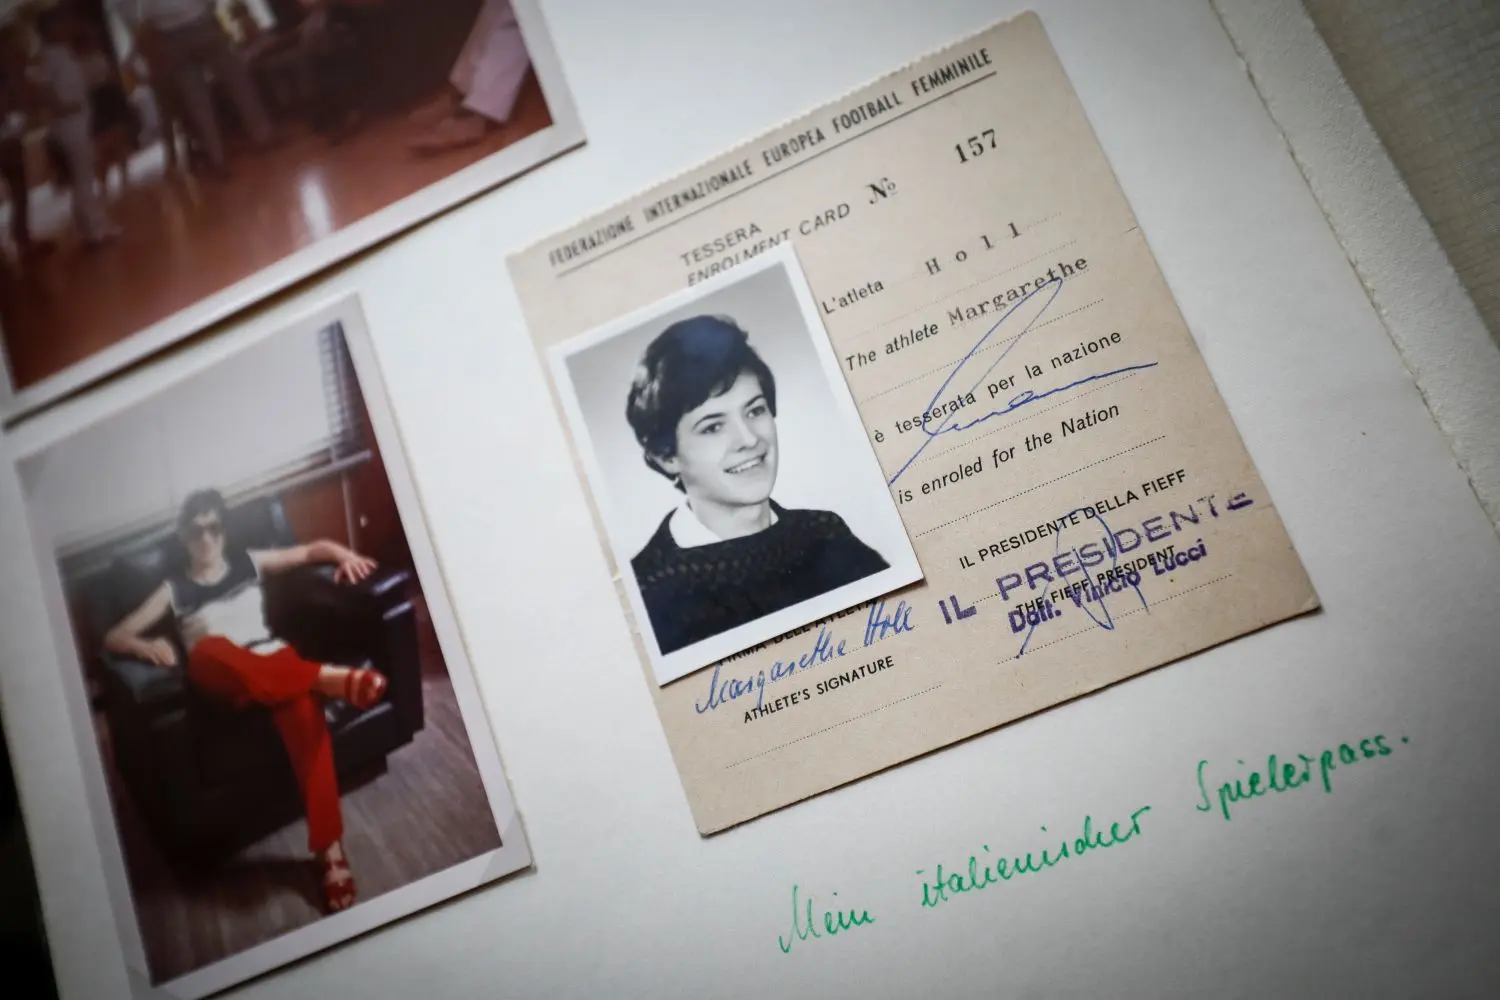 FEDERAZIONE INTERNAZIONALE EUROPEA FOOTBALL FEMMINILE
TESSERA
ENROLMENT CARD № 157
L'atleta Holl
The athlete Margarethe
è tesserata per la nazione
is enroled for the Nation
IL PRESIDENTE DELLA FIEFF
IL PRESIDENTE
THE FIEFF PRESIDENT
Dott. Vinicio Lucci
FIRMA DELL'ATLETA
Margarethe Holl
ATHLETE'S SIGNATURE
Mein italienischer Spielerpass.